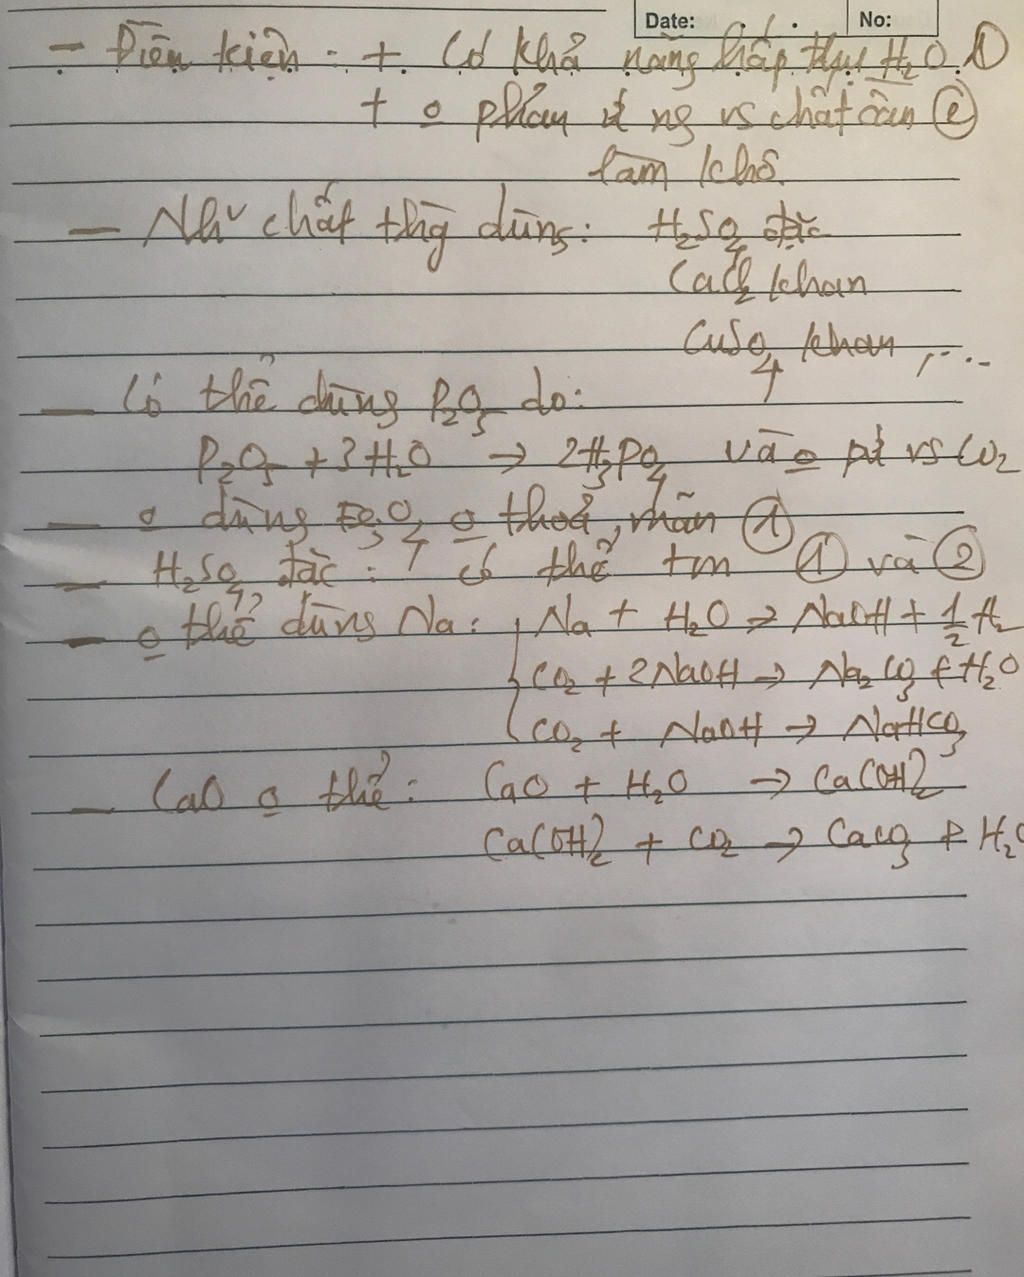 Date: . . No:
- Điều kiện : + Có khả năng hấp thụ H₂O ①
+ o phản ứng vs chất cần ②
làm khô.
- Như chất thg dùng: H₂SO₄ đặc
CaCl₂ khan
CuSO₄ khan ,...
- Có thể dùng P₂O₅ do:
P₂O₅ + 3H₂O → 2H₃PO₄ và o pứ vs CO₂
- o dùng Fe₃O₄ o thoả mãn ①
- H₂SO₄ đặc : có thể tm ① và ②
- o thể dùng Na: Na + H₂O → NaOH + ½ H₂
CO₂ + 2NaOH → Na₂CO₃ + H₂O
CO₂ + NaOH → NaHCO₃
- CaO o thể : CaO + H₂O → Ca(OH)₂
Ca(OH)₂ + CO₂ → CaCO₃ + H₂O